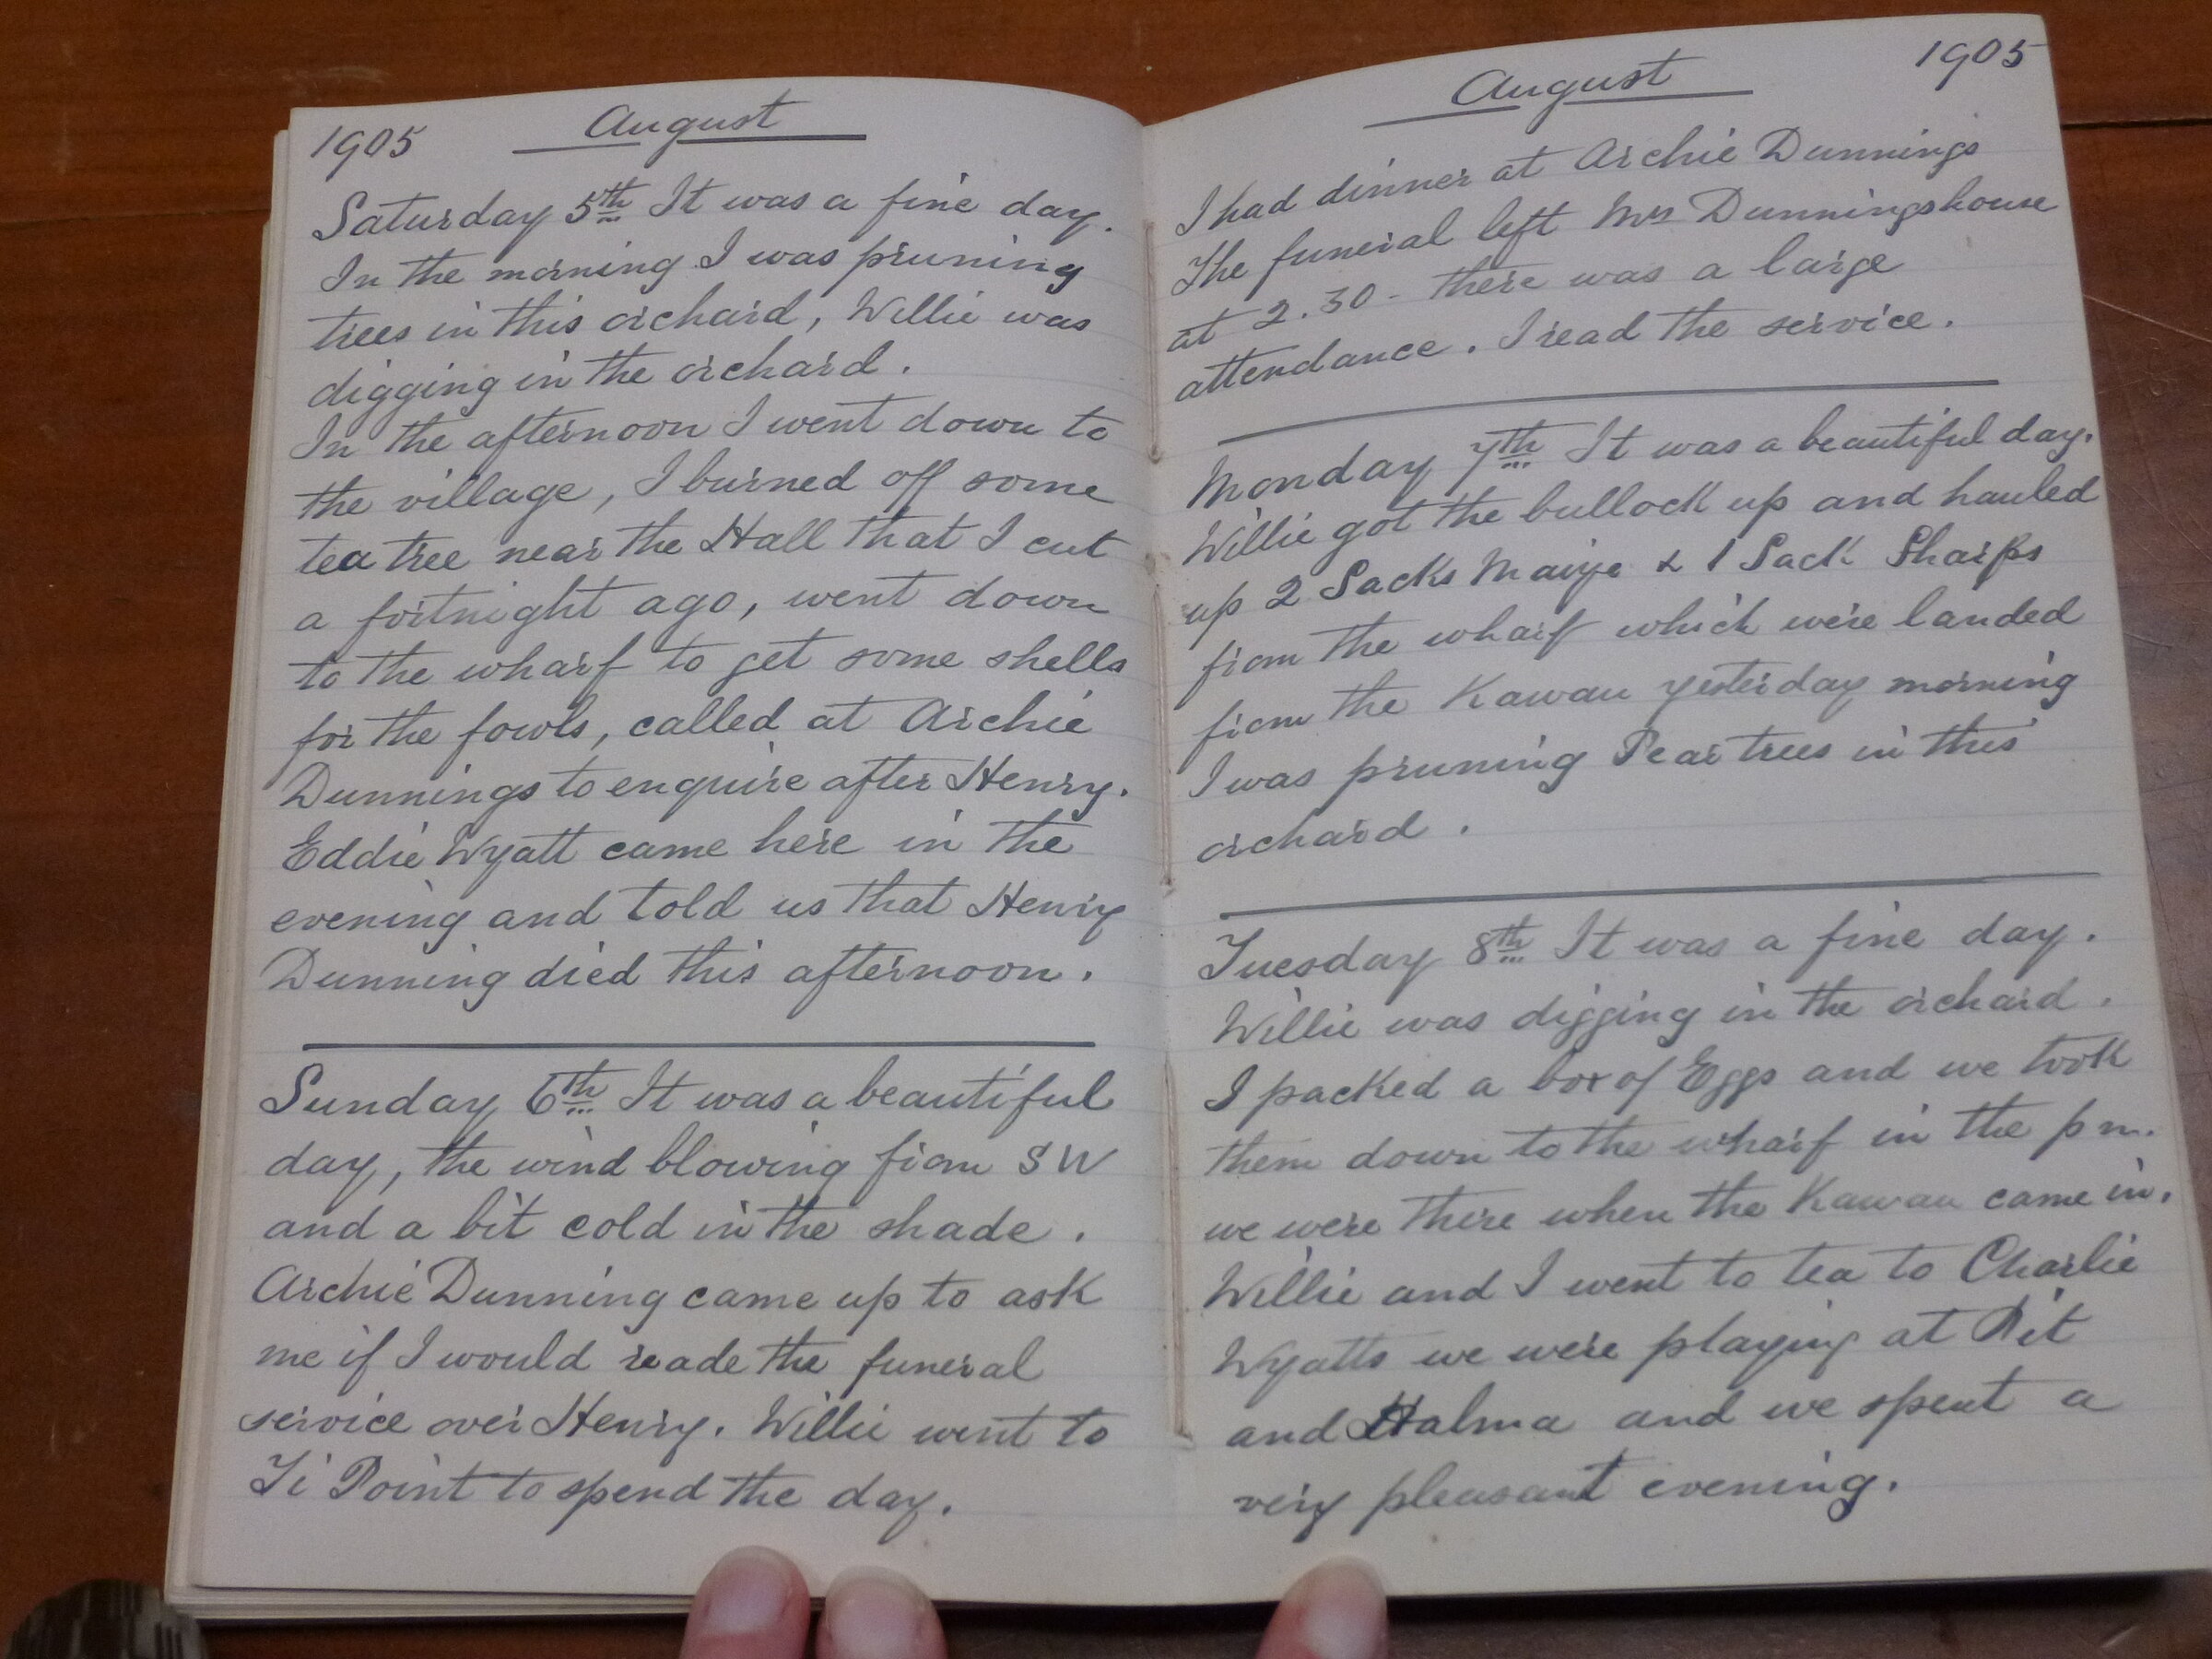 1905 August
Saturday 5th It was a fine day.
In the morning I was pruning
trees in this orchard, Willie was
digging in the orchard.
In the afternoon I went down to
the village, I burned off some
tea tree near the Hall that I cut
a fortnight ago, went down
to the wharf to get some shells
for the fowls, called at Archie
Dunnings to enquire after Henry.
Eddie Wyatt came here in the
evening and told us that Henry
Dunning died this afternoon.
Sunday 6th It was a beautiful
day, the wind blowing from SW
and a bit cold in the shade.
Archie Dunning came up to ask
me if I would reade the funeral
service over Henry. Willie went to
Ti Point to spend the day.
August 1905
I had dinner at Archie Dunnings
The funeral left Mrs Dunnings house
at 2.30 - there was a large
attendance. I read the service.
Monday 7th It was a beautiful day.
Willie got the bullock up and hauled
up 2 Sacks Maize & 1 Sack Sharps
from the wharf which were landed
from the Kawau yesterday morning
I was pruning Pear trees in this
orchard.
Tuesday 8th It was a fine day.
Willie was digging in the orchard.
I packed a box of Eggs and we took
them down to the wharf in the pm.
we were there when the Kawau came in.
Willie and I went to tea to Charlie
Wyatts we were playing at Pit
and Halma and we spent a
very pleasant evening.